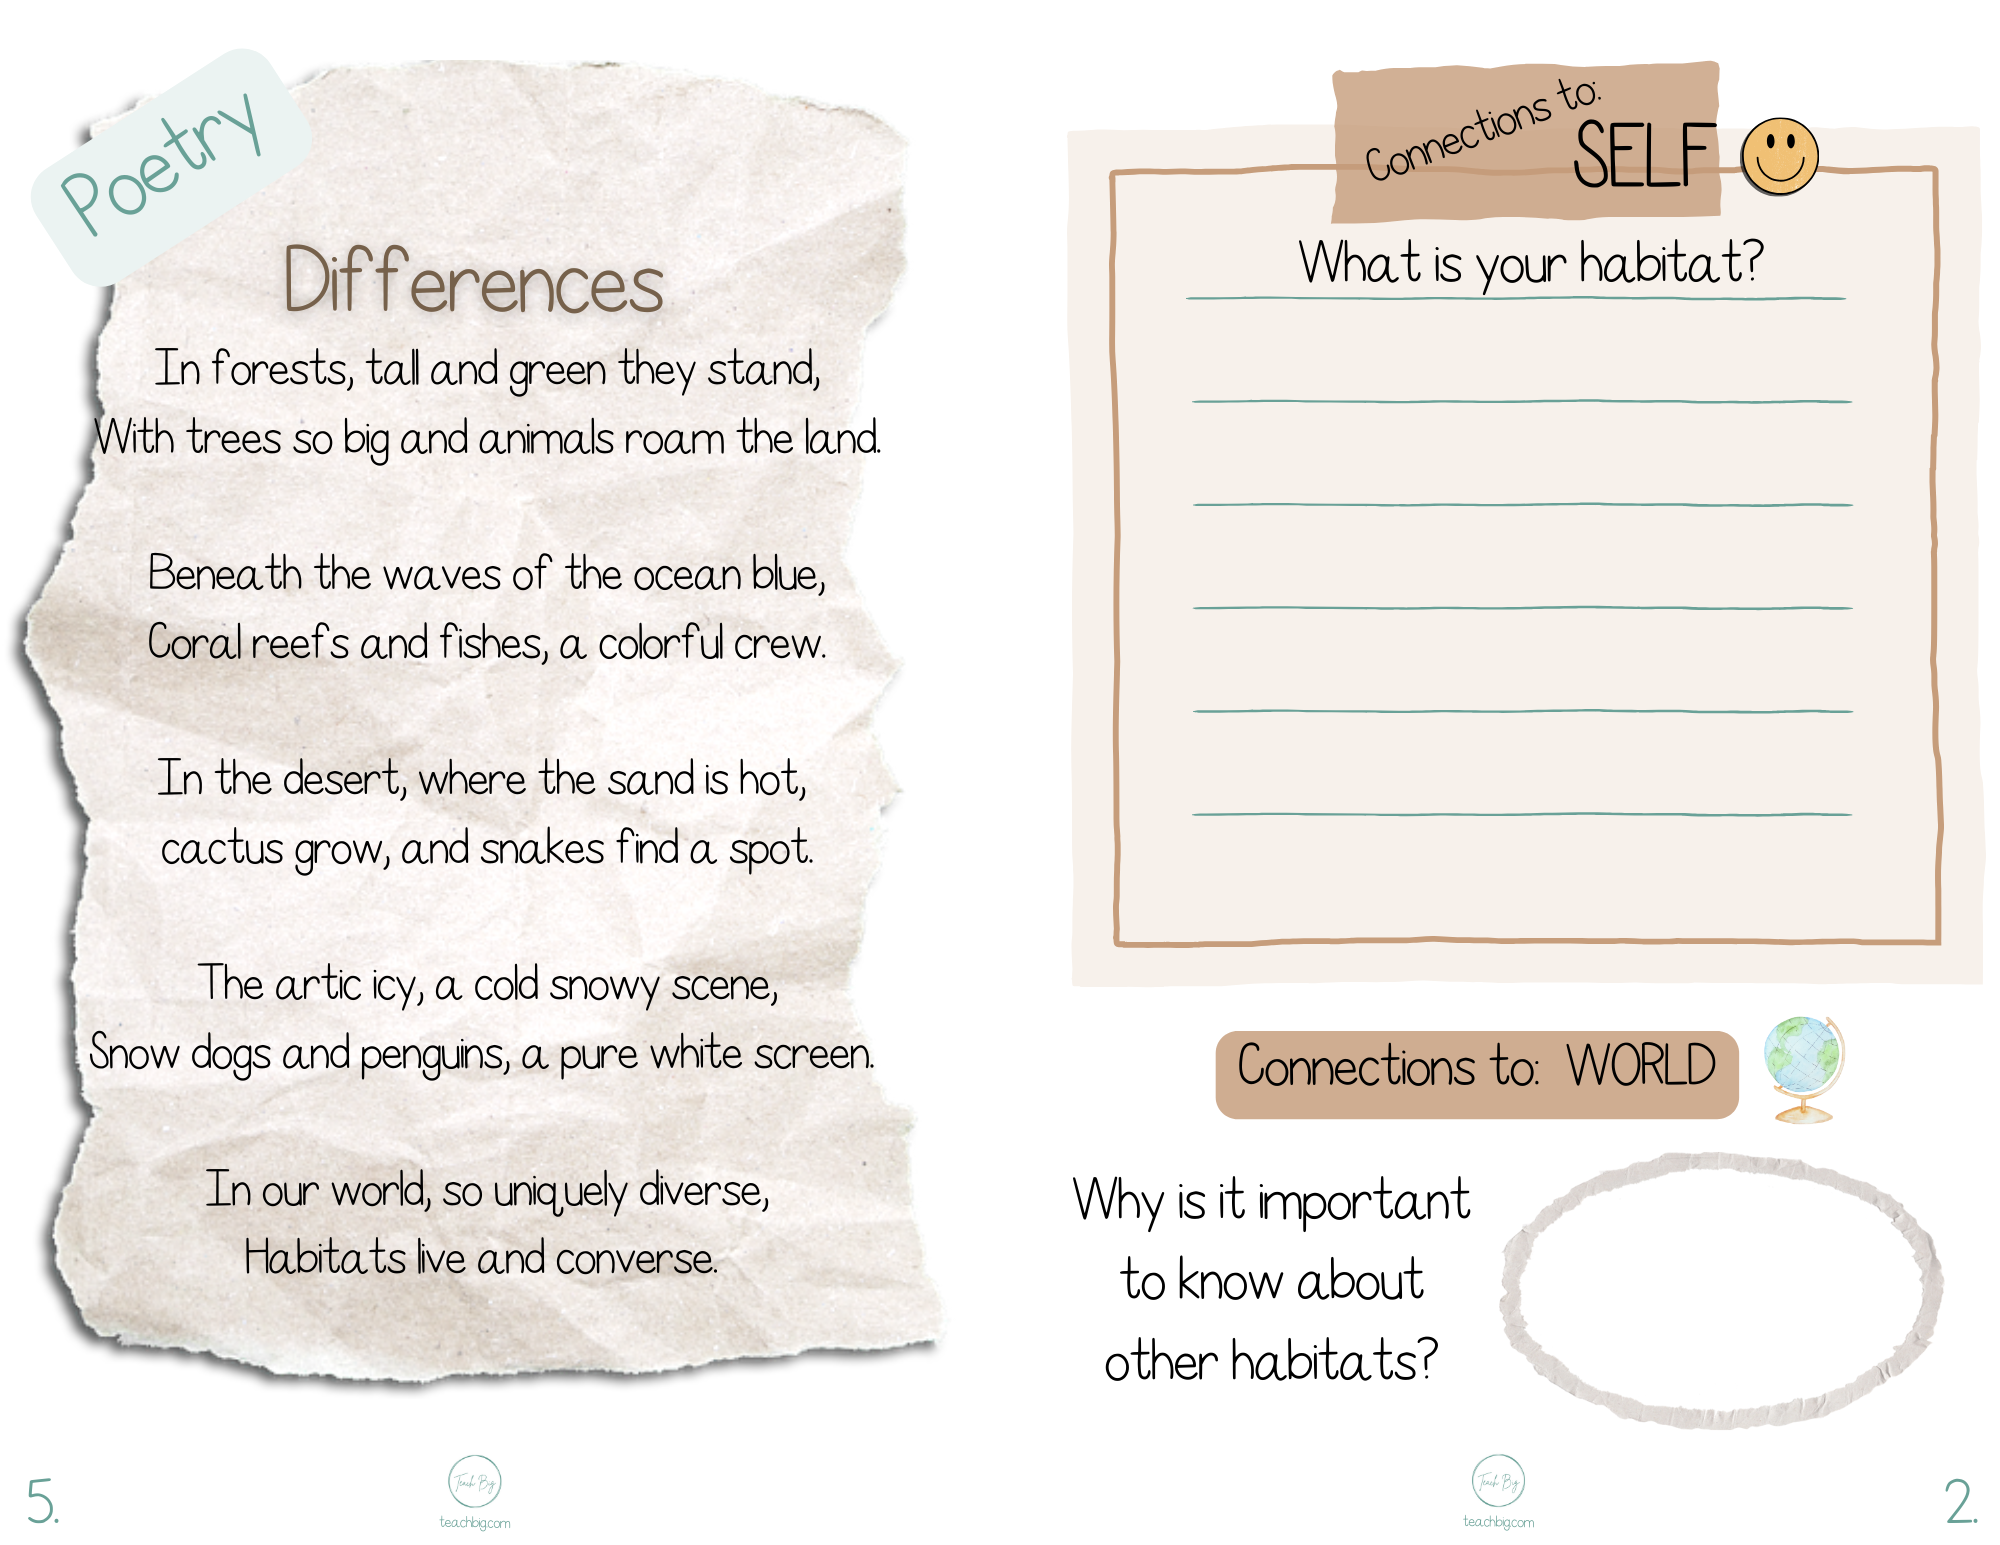 Poetry
Differences
In forests, tall and green they stand,
With trees so big and animals roam the land.
Beneath the waves of the ocean blue,
Coral reefs and fishes, a colorful crew.
In the desert, where the sand is hot,
cactus grow, and snakes find a spot.
The artic icy, a cold snowy scene,
Snow dogs and penguins, a pure white screen.
In our world, so uniquely diverse,
Habitats live and converse.
5.
Teach Big
teachbig.com
Connections to:
SELF
What is your habitat?
Connections to: WORLD
Why is it important
to know about
other habitats?
Teach Big
teachbig.com
2.